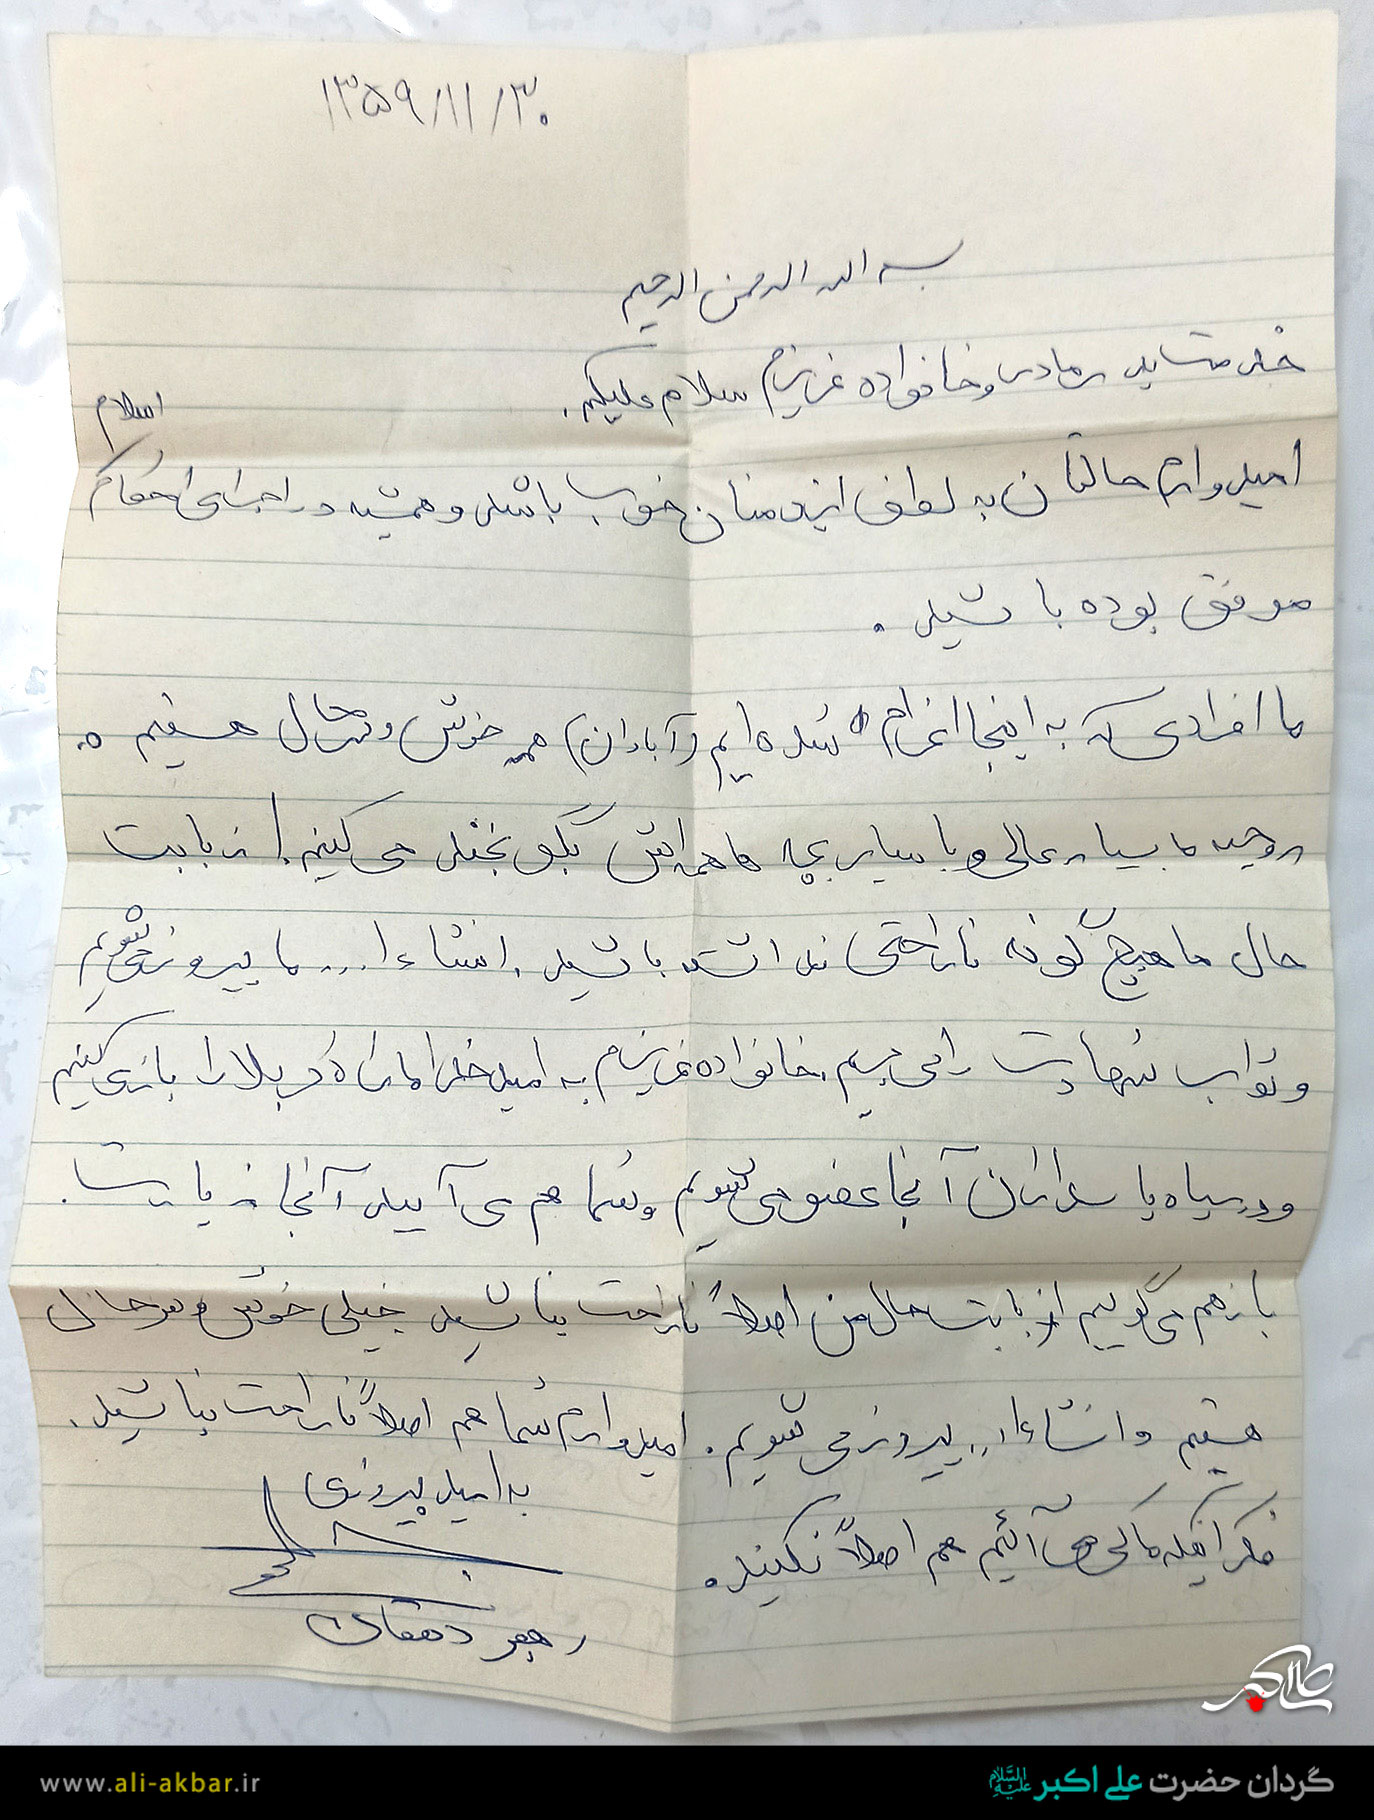 ۱۳۵۹/۱۱/۳۰
بسم الله الرحمن الرحیم
خدمت پدر مادر و خانواده عزیزم سلام علیکم.
امیدوارم حالتان به لطف ایزد منان خوب باشد و همیشه در اجرای احکام اسلام
موفق بوده باشید.
ما افرادی که به اینجا اعزام شده ایم (آبادان) همه خوش و سرحال هستیم.
روحیه ما بسیار عالی و با سایر بچه ها همه اش بگو بخند می کنیم. از بابت
حال ما هیچ گونه ناراحتی نداشته باشید. انشاءا... ما پیروز می شویم
و ثواب شهادت را می بریم. خانواده عزیزم به امید خدا ما راه کربلا را باز می کنیم
و در سپاه پاسداران آنجا عضو می شویم و شما هم می آیید آنجا زیارت.
باز هم می گوییم از بابت حال من اصلاً ناراحت نباشید خیلی خوش و سرحال
هستیم و انشاءا... پیروز می شویم. امیدوارم شما هم اصلاً ناراحت نباشید.
فکر اینکه ما کی می آئیم هم اصلاً نکنید.
به امید پیروزی
رهبر دهقان
علی اکبر
www.ali-akbar.ir
گردان حضرت علی اکبر علیه السلام